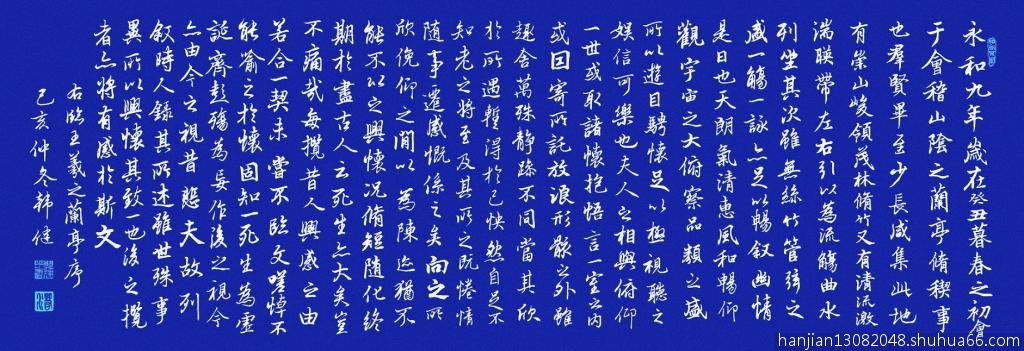 永和九年歲在癸丑暮春之初會
于會稽山陰之蘭亭脩稧事
也羣賢畢至少長咸集此地
有崇山峻領茂林脩竹又有清流激
湍暎帶左右引以為流觴曲水
列坐其次雖無絲竹管弦之
盛一觴一詠亦足以暢叙幽情
是日也天朗氣清惠風和暢仰
觀宇宙之大俯察品類之盛
所以遊目騁懷足以極視聽之
娛信可樂也夫人之相與俯仰
一世或取諸懷抱悟言一室之內
或因寄所託放浪形骸之外雖
趣舍萬殊静躁不同當其欣
於所遇蹔得於己怏然自足不
知老之將至及其所之既惓情
隨事遷感慨係之矣向之所
欣俛仰之閒以為陳迹猶不
能不以之興懷况脩短隨化終
期於盡古人云死生亦大矣豈
不痛哉每攬昔人興感之由
若合一契未嘗不臨文嗟悼不
能喻之於懷固知一死生為虛
誕齊彭殤為妄作後之視今
亦由今之視昔悲夫故列
叙時人錄其所述雖世殊事
異所以興懷其致一也後之攬
者亦將有感於斯文
右臨王羲之蘭亭序
己亥仲冬韓健
hanjian13082048.shuhua66.com